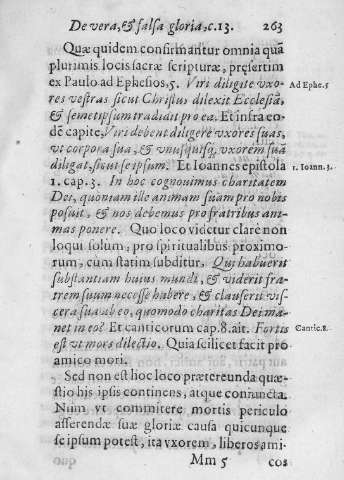 De vera, & falsa gloria, c.13. 263
Quæ quidem confirmantur omnia quā
plurimis locis sacræ scripturæ, pręsertim
ex Paulo ad Ephesios, 5. Viri diligite vxo-
res vestras sicut Christus dilexit Ecclesiā,
& semetipsum tradidit pro ea. Et infra eo-
dē capite, Viri debent diligere vxores suas,
vt corpora sua, & vnusquisq; vxorem suā
diligat, sicut se ipsum. Et Ioannes epistola
1. cap. 3. In hoc cognouimus charitatem
Dei, quoniam ille animam suam pro nobis
posuit, & nos debemus pro fratribus ani-
mas ponere. Quo loco videtur clarè non
loqui solum, pro spiritualibus proximo-
rum, cum statim subditur. Qui habuerit
substantiam huius mundi, & viderit fra-
trem suum necesse habere, & clauserit vis-
cera sua ab eo, quomodo charitas Dei ma-
net in eo? Et canticorum cap. 8. ait. Fortis
est vt mors dilectio. Quia scilicet facit pro
amico mori.
Sed non est hoc loco prætereunda quæ-
stio his ipsis continens, atque coniuncta.
Num vt committere mortis periculo
asserendæ suæ gloriæ causa quicunque
se ipsum potest, ita vxorem, liberos ami-
Mm 5 cos
Ad Ephe. 5
1. Ioann. 3.
Cantic. 8.